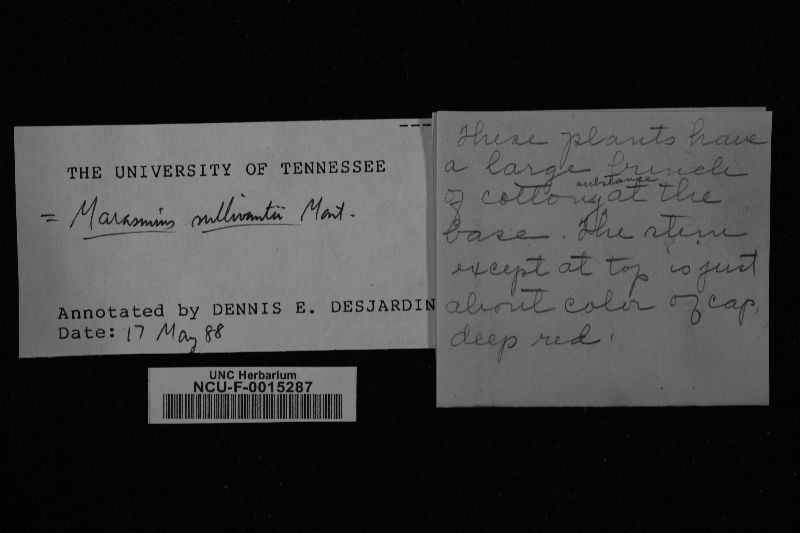 THE UNIVERSITY OF TENNESSEE
= Marasmius sullivantii Mont.
Annotated by DENNIS E. DESJARDIN
Date: 17 May 88
UNC Herbarium
NCU-F-0015287
These plants have
a large
of cottony substance at the
base. The stem
except at top is just
about color of cap,
deep red.